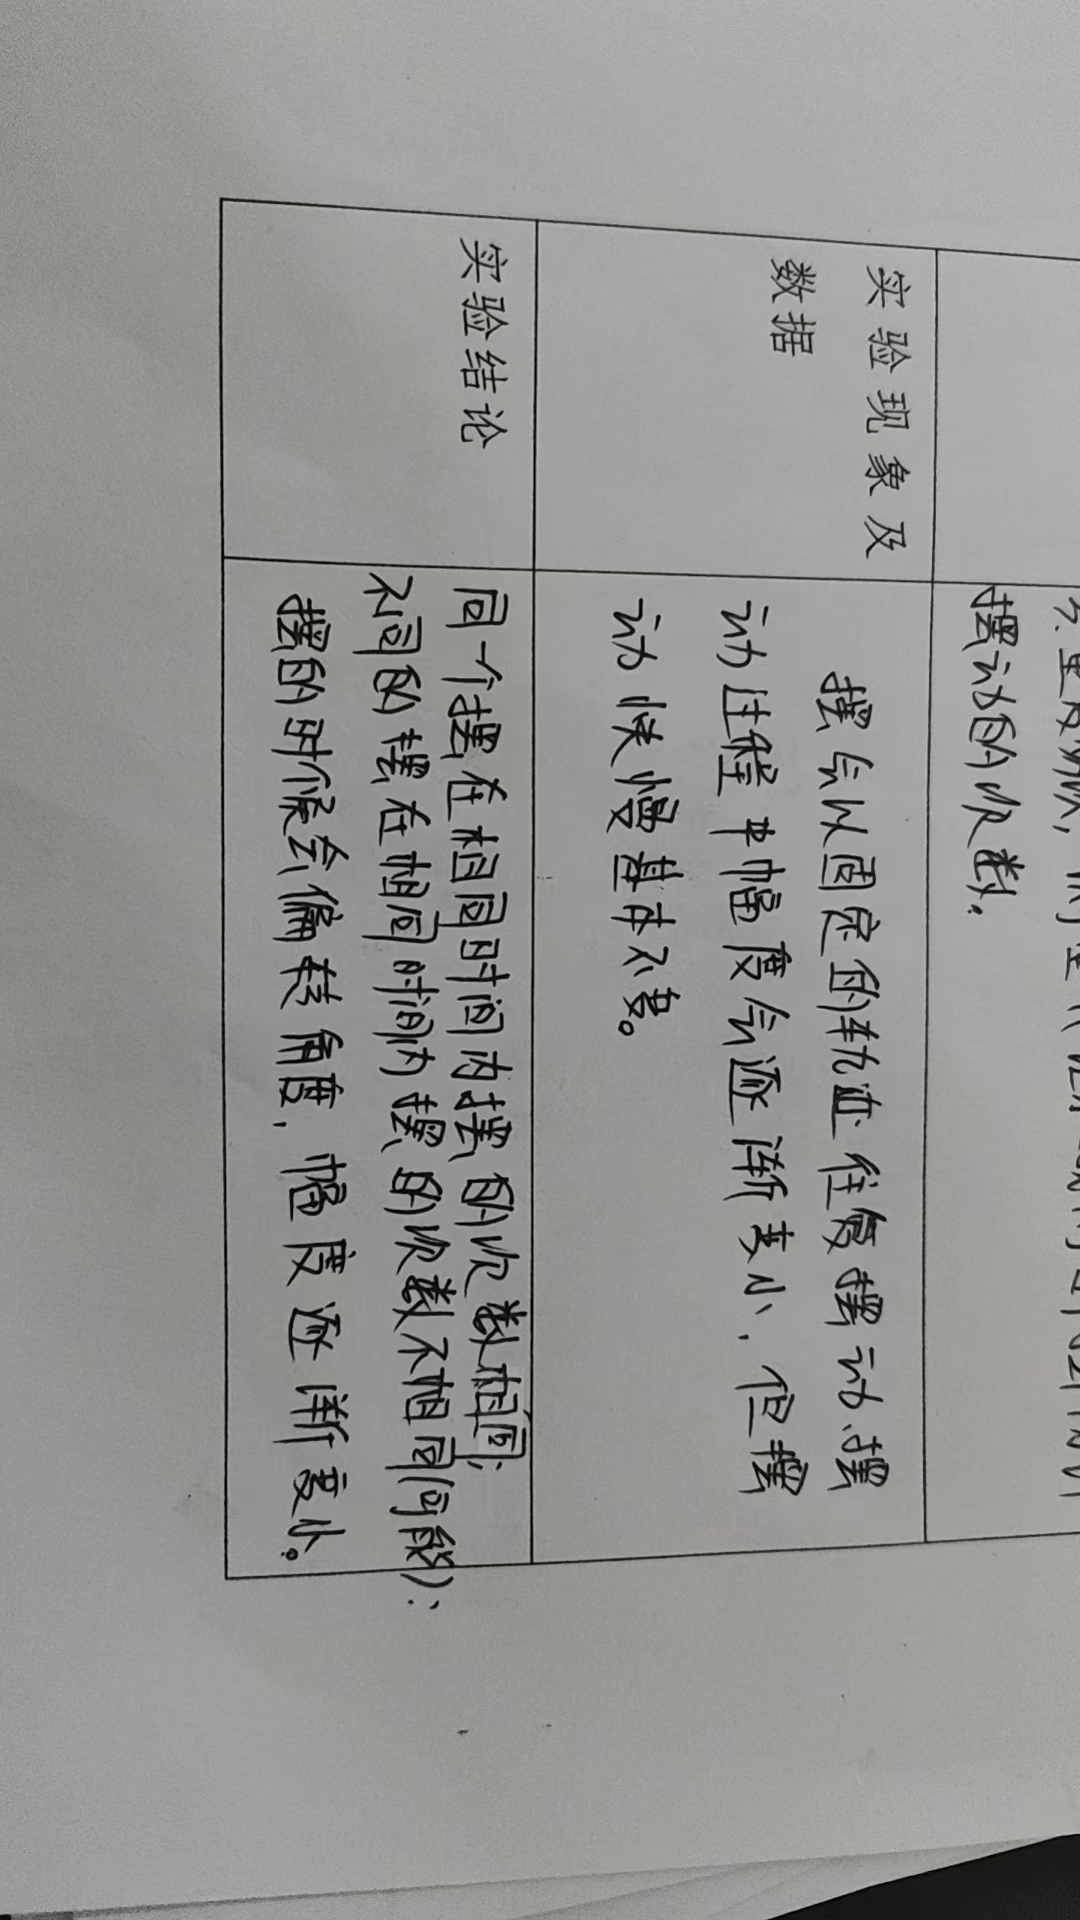 摆动的次数。
实验现象及
数据
摆会以固定的轨迹往复摆动.摆
动过程中幅度会逐渐变小.但摆
动快慢基本不变。
实验结论
同一个摆在相同时间内摆的次数相同;
不同的摆在相同时间内摆的次数不相同(可能);
摆的时候会偏转角度.幅度逐渐变小。